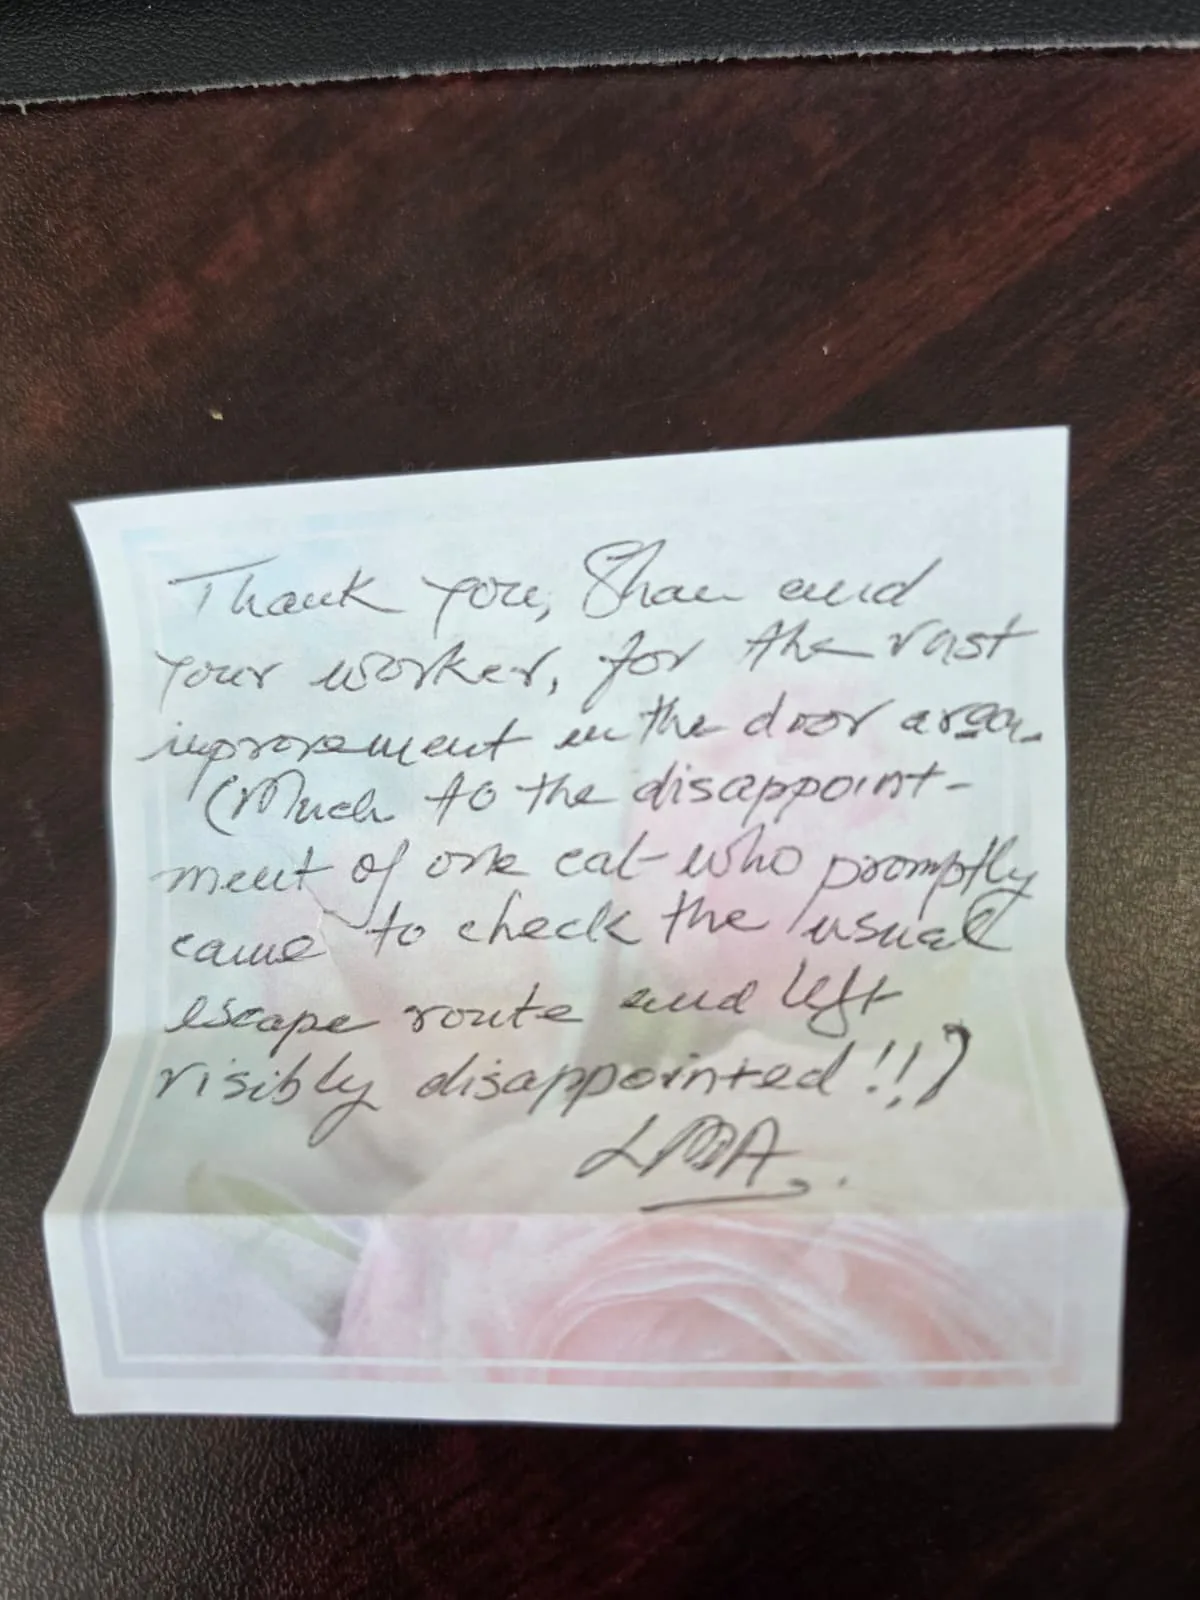 Thank you, Shan and
your worker, for the vast
improvement in the door area.
(Much to the disappoint-
ment of one cat who promptly
came to check the usual
escape route and left
visibly disappointed!!)